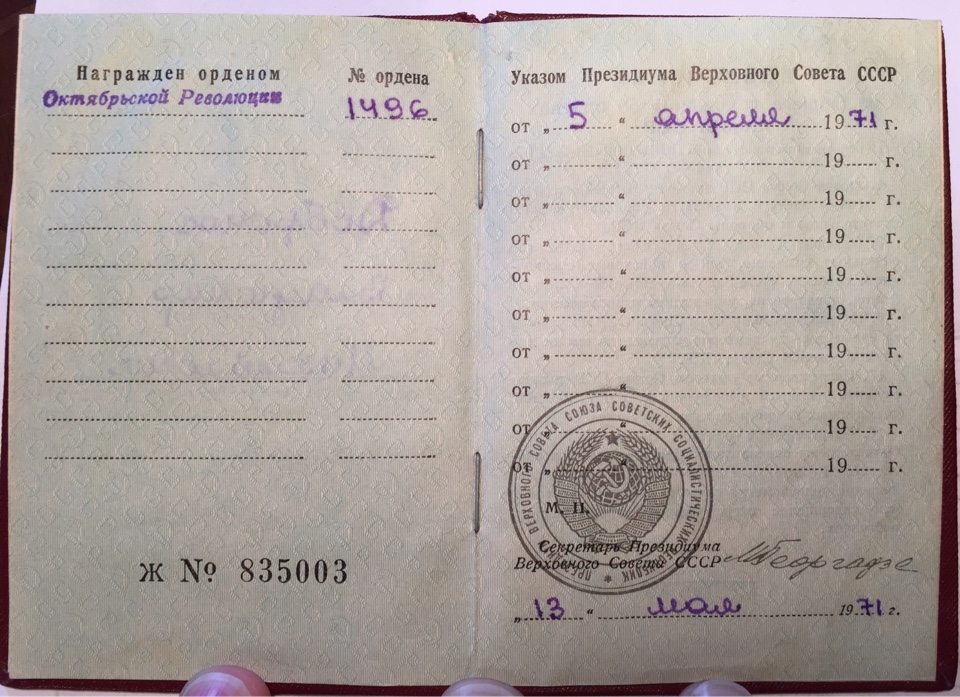 Награжден орденом
№ ордена
Октябрьской Революции
1496
Ж № 835003
Указом Президиума Верховного Совета СССР
от „ 5 “ апреля 1971 г.
от „ “ 19 г.
от „ “ 19 г.
от „ “ 19 г.
от „ “ 19 г.
от „ “ 19 г.
от „ “ 19 г.
от „ “ 19 г.
от „ “ 19 г.
от „ “ 19 г.
от „ “ 19 г.
ПРЕЗИДИУМ ВЕРХОВНОГО СОВЕТА СОЮЗА СОВЕТСКИХ СОЦИАЛИСТИЧЕСКИХ РЕСПУБЛИК
М. П.
Секретарь Президиума
Верховного Совета СССР
МГеоргадзе
„ 13 “ мая 1971 г.